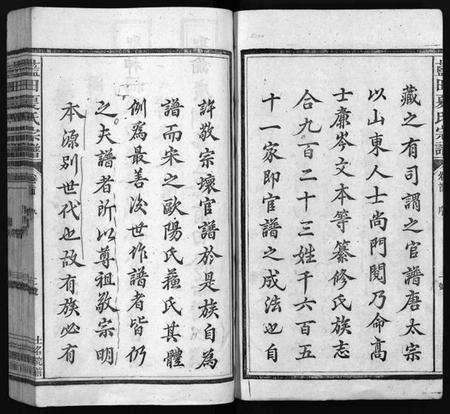 氏宗譜
卷首
藏之有司謂之官譜唐太宗
以山東人士尚門閥乃命高
士廉岑文本等纂修氏族志
合九百二十三姓千六百五
十一家即官譜之成法也自
許敬宗壞官譜於是族自為
譜而宋之歐陽氏蘓氏其體
例為最善後世作譜者皆仍
之夫譜者所以尊祖敬宗明
本源別世代也故有族必有
藍田
氏宗譜